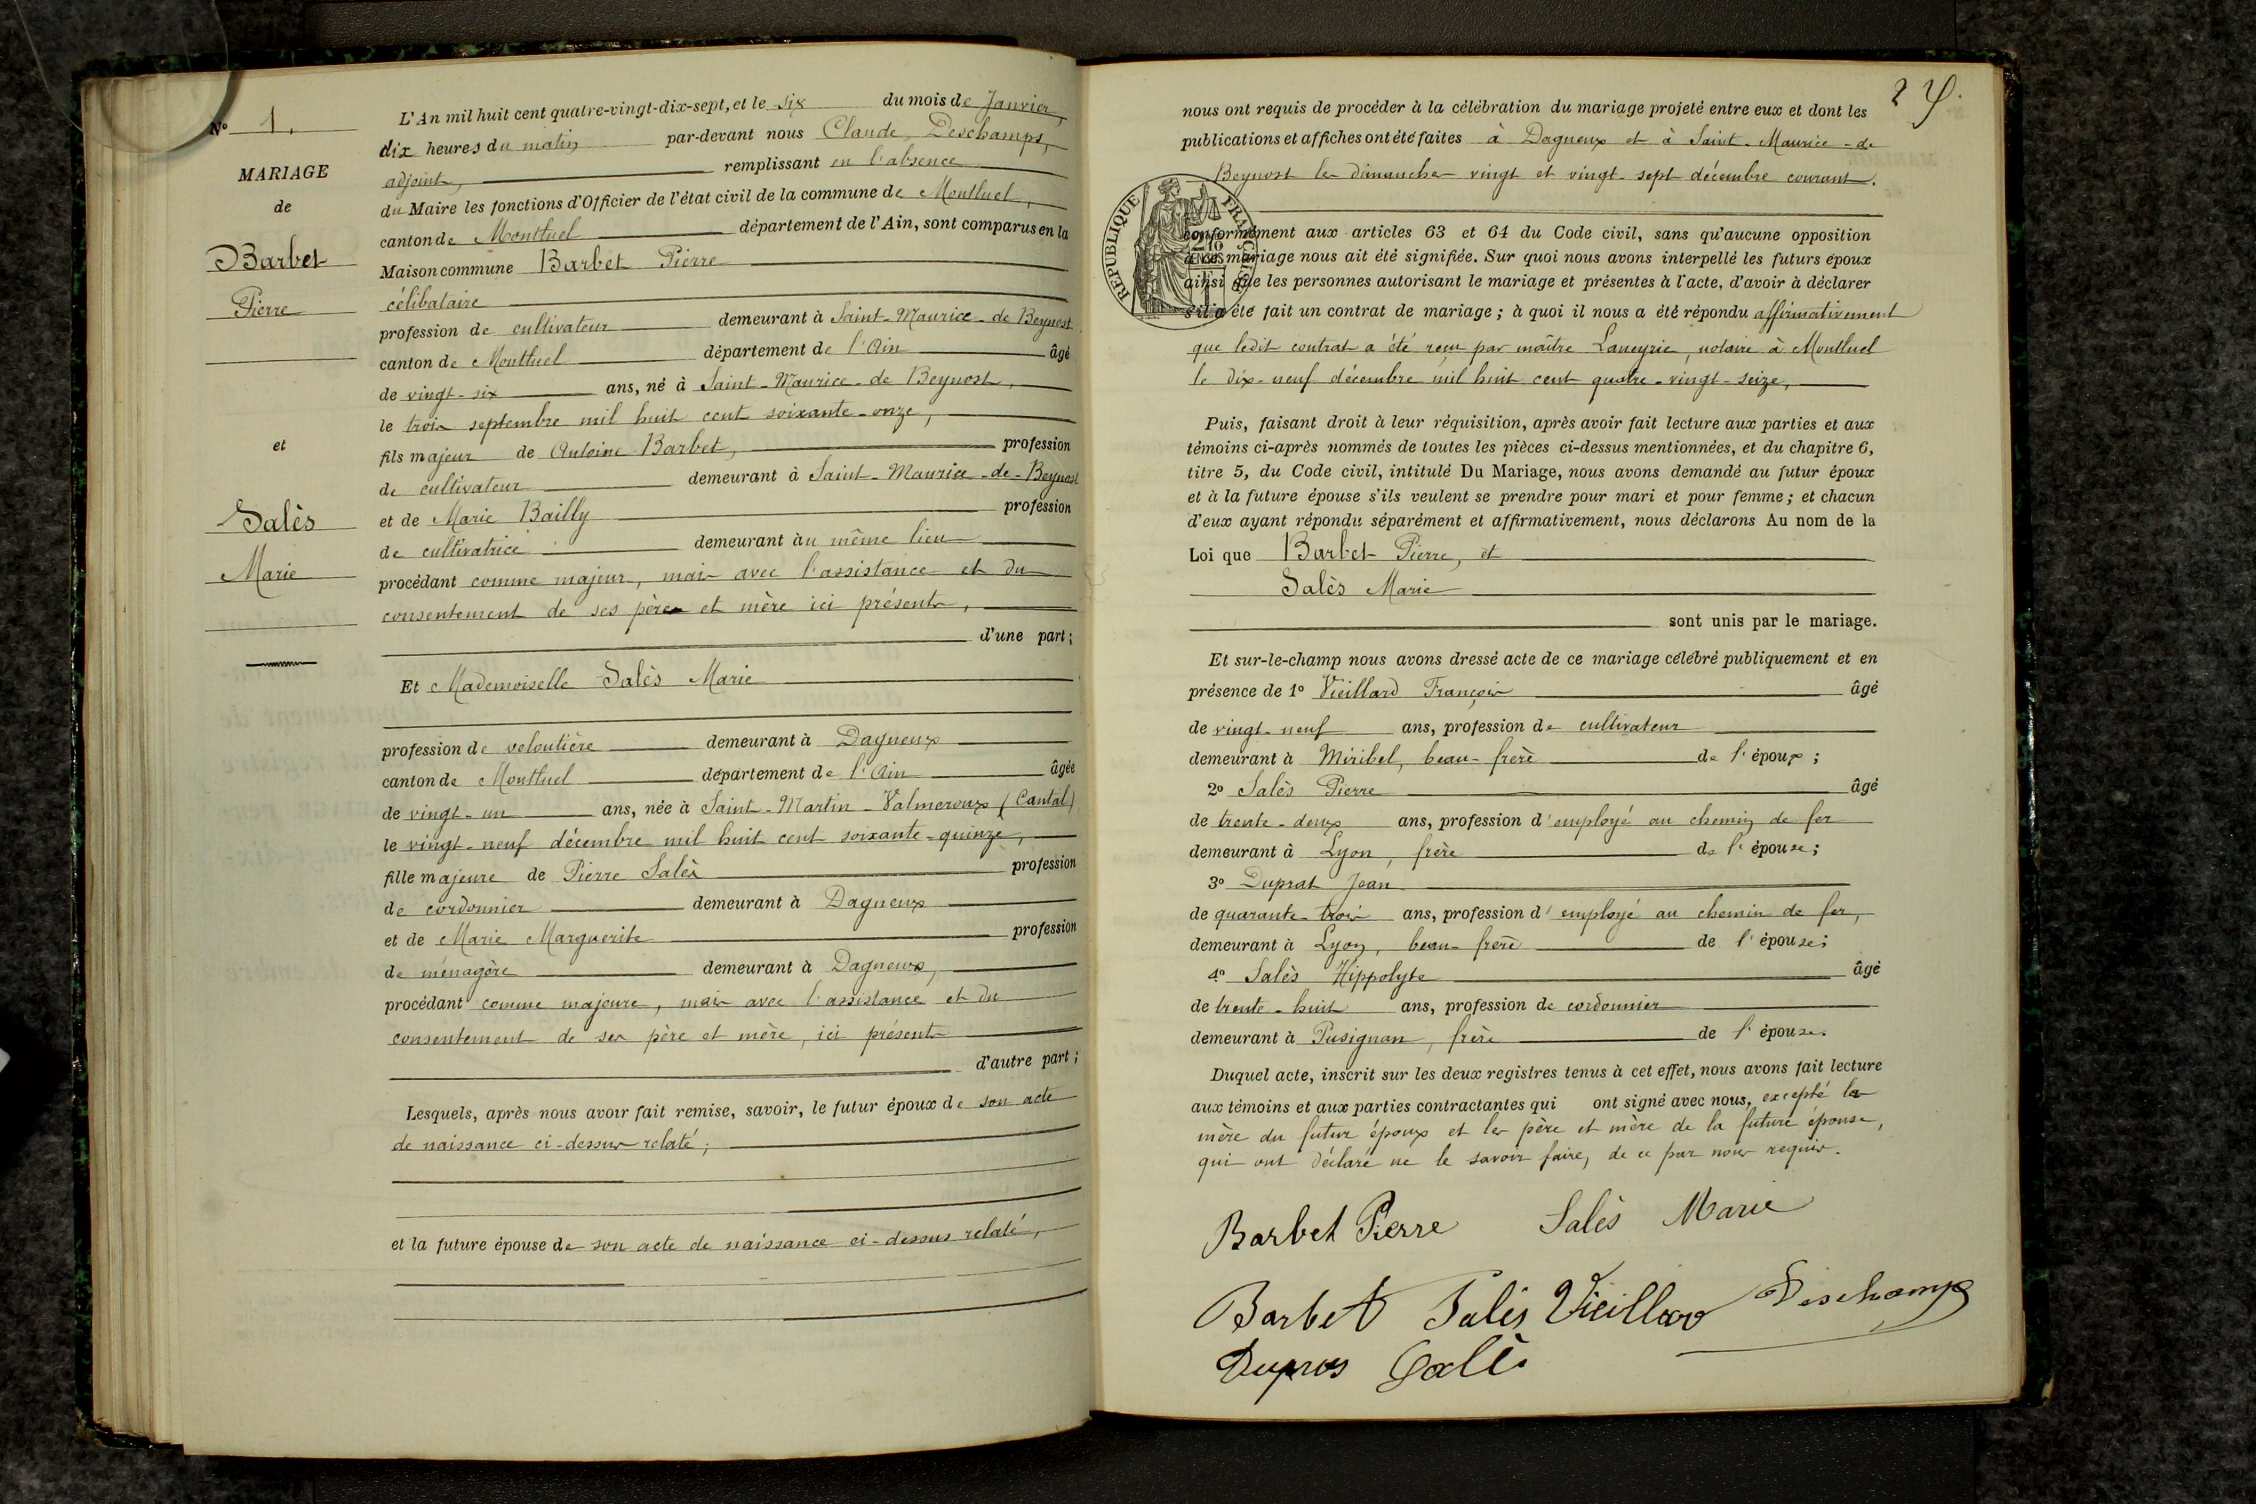 N° 1.
MARIAGE
de
Barbet
Pierre
et
Salès
Marie
L'An mil huit cent quatre-vingt-dix-sept, et le six du mois de Janvier,
dix heures du matin par-devant nous Claude Deschamps,
adjoint, remplissant en l'absence
du Maire les fonctions d'Officier de l'état civil de la commune de Montluel,
canton de Montluel département de l'Ain, sont comparus en la
Maison commune Barbet Pierre
célibataire
profession de cultivateur demeurant à Saint-Maurice-de Beynost
canton de Montluel département de l'Ain âgé
de vingt-six ans, né à Saint-Maurice-de Beynost,
le trois septembre mil huit cent soixante-onze,
fils majeur de Antoine Barbet, profession
de cultivateur demeurant à Saint-Maurice-de-Beynost
et de Marie Bailly profession
de cultivatrice demeurant au même lieu
procédant comme majeur, mais avec l'assistance et du
consentement de ses père et mère ici présents,
d'une part;
Et Mademoiselle Salès Marie
profession de veloutière demeurant à Dagneux
canton de Montluel département de l'Ain âgée
de vingt-un ans, née à Saint-Martin-Valmeroux (Cantal)
le vingt-neuf décembre mil huit cent soixante-quinze,
fille majeure de Pierre Salès profession
de cordonnier demeurant à Dagneux
et de Marie Marguerite profession
de ménagère demeurant à Dagneux,
procédant comme majeure, mais avec l'assistance et du
consentement de ses père et mère, ici présents
d'autre part;
Lesquels, après nous avoir fait remise, savoir, le futur époux de son acte
de naissance ci-dessus relaté;
et la future épouse de son acte de naissance ci-dessus relaté,
2
nous ont requis de procéder à la célébration du mariage projeté entre eux et dont les
publications et affiches ont été faites à Dagneux et à Saint-Maurice-de
Beynost les dimanches vingt et vingt-sept décembre courant.
RÉPUBLIQUE FRANÇAISE
conformément aux articles 63 et 64 du Code civil, sans qu'aucune opposition
à ce mariage nous ait été signifiée. Sur quoi nous avons interpellé les futurs époux
ainsi que les personnes autorisant le mariage et présentes à l'acte, d'avoir à déclarer
s'il a été fait un contrat de mariage; à quoi il nous a été répondu affirmativement
que ledit contrat a été reçu par maître Laneyrie, notaire à Montluel
le dix-neuf décembre mil huit cent quatre-vingt-seize,
Puis, faisant droit à leur réquisition, après avoir fait lecture aux parties et aux
témoins ci-après nommés de toutes les pièces ci-dessus mentionnées, et du chapitre 6,
titre 5, du Code civil, intitulé Du Mariage, nous avons demandé au futur époux
et à la future épouse s'ils veulent se prendre pour mari et pour femme; et chacun
d'eux ayant répondu séparément et affirmativement, nous déclarons Au nom de la
Loi que Barbet Pierre, et
Salès Marie
sont unis par le mariage.
Et sur-le-champ nous avons dressé acte de ce mariage célébré publiquement et en
présence de 1° Vieillard François âgé
de vingt-neuf ans, profession de cultivateur
demeurant à Miribel, beau-frère de l'époux;
2° Salès Pierre âgé
de trente-deux ans, profession d'employé au chemin de fer
demeurant à Lyon, frère de l'épouse;
3° Duprat Jean
de quarante-trois ans, profession d'employé au chemin de fer,
demeurant à Lyon, beau-frère de l'épouse;
4° Salès Hippolyte âgé
de trente-huit ans, profession de cordonnier
demeurant à Pusignan, frère de l'épouse.
Duquel acte, inscrit sur les deux registres tenus à cet effet, nous avons fait lecture
aux témoins et aux parties contractantes qui ont signé avec nous, excepté la
mère du futur époux et les père et mère de la future épouse,
qui ont déclaré ne le savoir faire, de ce par nous requis.
Barbet Pierre Salès Marie
Barbet Salès Vieillard Deschamps
Salès